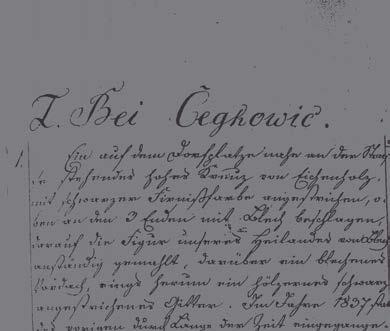 I. Bei Čeghowic.
1. Ein auf dem Dorfplatze nahe an der Stra-
ße stehendes hohes Kreuz von Eichenholz,
mit schwarzer Firnißfarbe angestrichen, o-
ben an den 3 Enden mit Blech beschlagen,
darauf die Figur unseres Heilandes von Blech
anständig gemahlt, darüber ein blechenes
Vordach, rings herum ein hölzernes schwarz
angestrichenes Gitter. Im Jahre 1837 statt
des vorigen durch Länge der Zeit eingegangenen